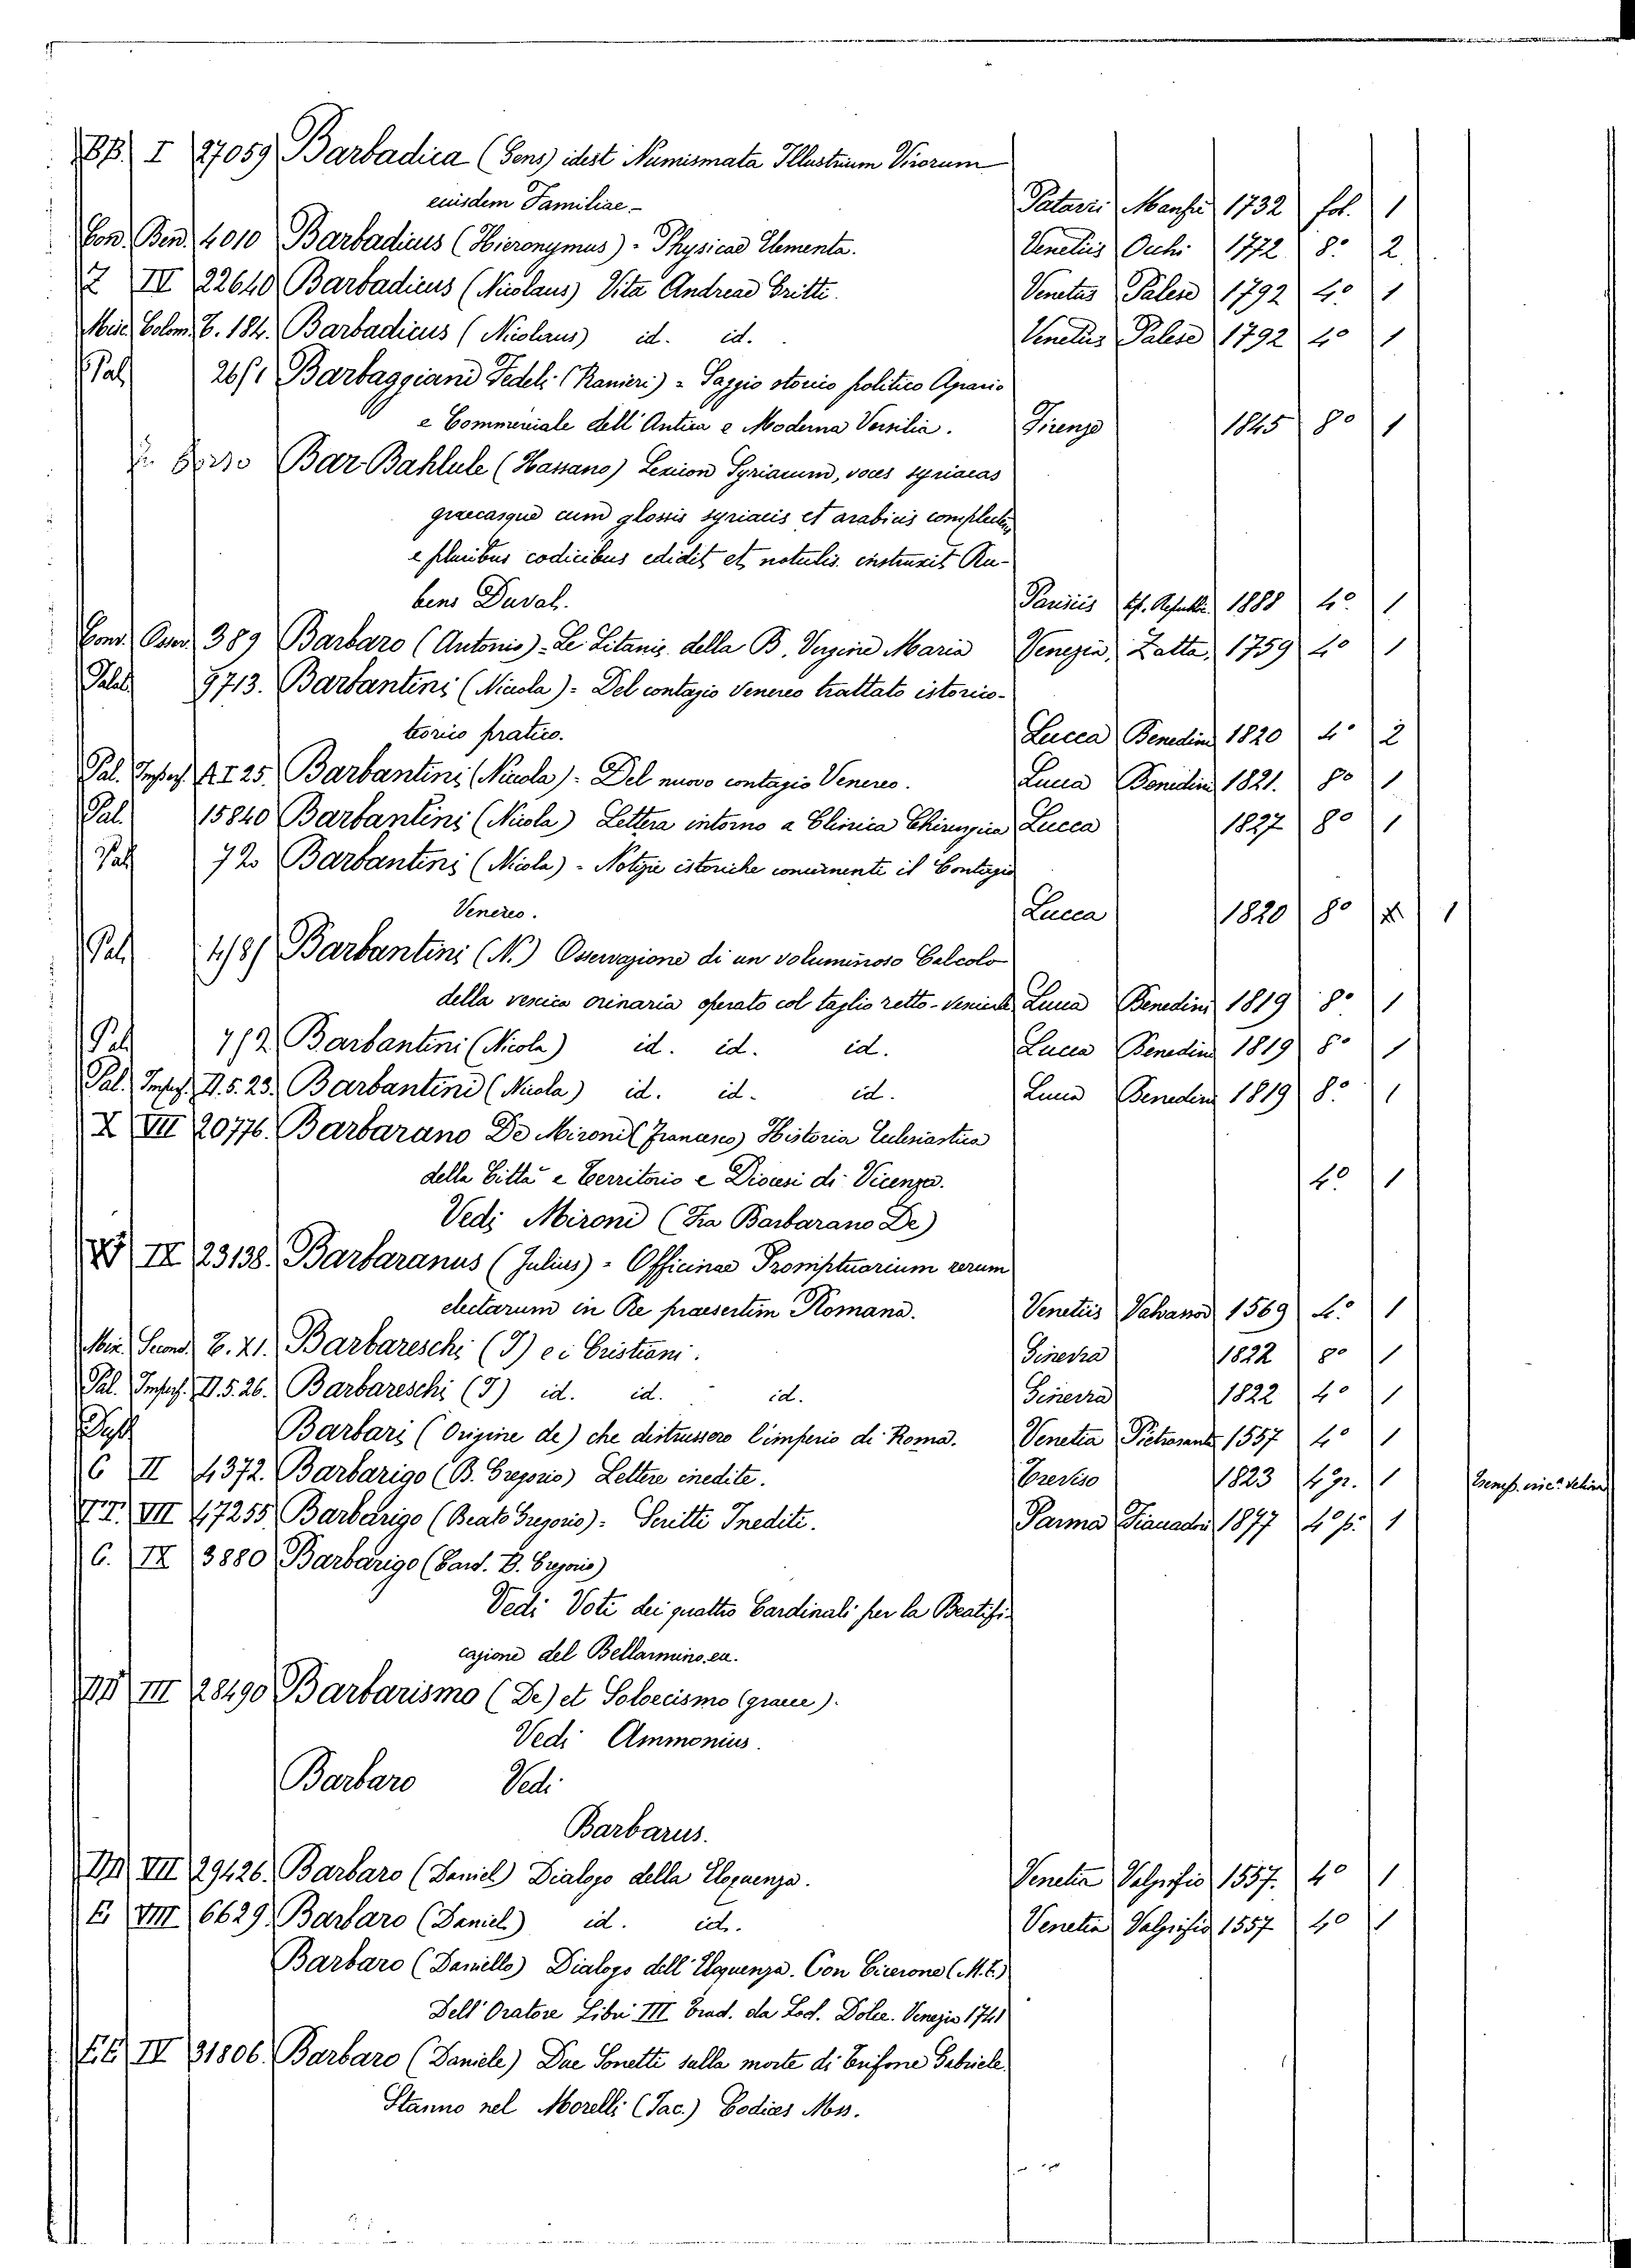 BB. I 27059 Barbadica (Gens) idest Numismata Illustrium Virorum
eiusdem Familiae.- Patavii Manfrè 1732 fol. 1
Con. Ben. 4010 Barbadicus (Hieronymus) - Physicae Elementa. Venetiis Occhi 1772 8.° 2
Z IV 22640 Barbadicus (Nicolaus) Vita Andreae Gritti. Venetiis Palese 1792 4.° 1
Misc. Colom. 6. 184. Barbadicus (Nicolaus) id. id. Venetiis Palese 1792 4° 1
Pal 26/1 Barbaggiani Fedeli (Ranieri) = Saggio storico politico Agrario
e Commerciale dell' Antica e Moderna Versilia. Firenze 1845 8° 1
In Bar-Bahlule (Hassano) Lexicon Syriacum, voces syriacas
graecasque cum glossis syriacis et arabicis complectens
e pluribus codicibus edidit et notulis instruxit Ru-
bens Duval. Parisiis 1888 4° 1
Cons. Osser. 389 Barbaro (Antonio) - Le Litanie della B. Vergine Maria Venezia, Zatta, 1759 4° 1
Palat 9713. Barbantini (Nicola) = Del contagio Venereo trattato istorico-
teorico pratico. Lucca Benedini 1820 4° 2
Pal. A I 25. Barbantini (Nicola) = Del nuovo contagio Venereo. Lucca Benedini 1821. 8° 1
Pal. 15840 Barbantini (Nicola) Lettera intorno a Clinica Chirurgica Lucca 1827 8° 1
Pal 72 Barbantini (Nicola) - Notizie istoriche concernente il Contagio
Venereo. Lucca 1820 8° 1
Pal 4/8/ Barbantini (N.) Osservazione di un voluminoso Calcolo
della vescica orinaria operato col taglio retto-vescicale Lucca Benedini 1819 8° 1
Pal 7/2 Barbantini (Nicola) id. id. id. Lucca Benedini 1819 8° 1
Pal. II. 5. 23. Barbantini (Nicola) id. id. id. Lucca Benedini 1819 8.° 1
X VII 20776. Barbarano De Mironi (Francesco) Historia Ecclesiastica
della Città e Territorio e Diocesi di Vicenza. 4.° 1
Vedi Mironi (Fra Barbarano De)
IX 23138. Barbaranus (Julius) - Officinae Promptuarium rerum
electarum in Re praesertim Romana. Venetiis Valvassor 1569 4.° 1
Mis. Second. 6. 21. Barbareschi (I) e i Cristiani. Ginevra 1822 8° 1
Pal. II. 5. 26. Barbareschi (I) id. id. id. Ginevra 1822 4° 1
Barbari (Origine de) che distrussero l'imperio di Roma. Venetia Pietrasanta 1557 4° 1
6 II 4372. Barbarigo (B. Gregorio) Lettere inedite. Treviso 1823 4 gr. 1
TT. VII 47255 Barbarigo (Beato Gregorio) = Scritti Inediti. Parma Fiaccadori 1877 4° p. 1
6. IX 3880 Barbarigo (Card. B. Gregorio)
Vedi Voti dei quattro Cardinali per la Beatifi-
cazione del Bellarmino. ea.
III 28490 Barbarismo (De) et Soloecismo (graece).
Vedi Ammonius.
Barbaro Vedi
Barbarus.
VII 29426. Barbaro (Daniel) Dialogo della Eloquenza. Venetia Valgrisio 1557. 4° 1
E VIII 6629 Barbaro (Daniel) id. id. Venetia Valgrisio 1557 4° 1
Barbaro (Daniello) Dialogo dell' Eloquenza. Con Cicerone (M. T.)
Dell' Oratore Libri III Trad. da Lod. Dolce. Venezia 1741
EE IV 31806. Barbaro (Daniele) Due Sonetti sulla morte di Trifone Gabriele.
Stanno nel Morelli (Jac.) Codices Mss.